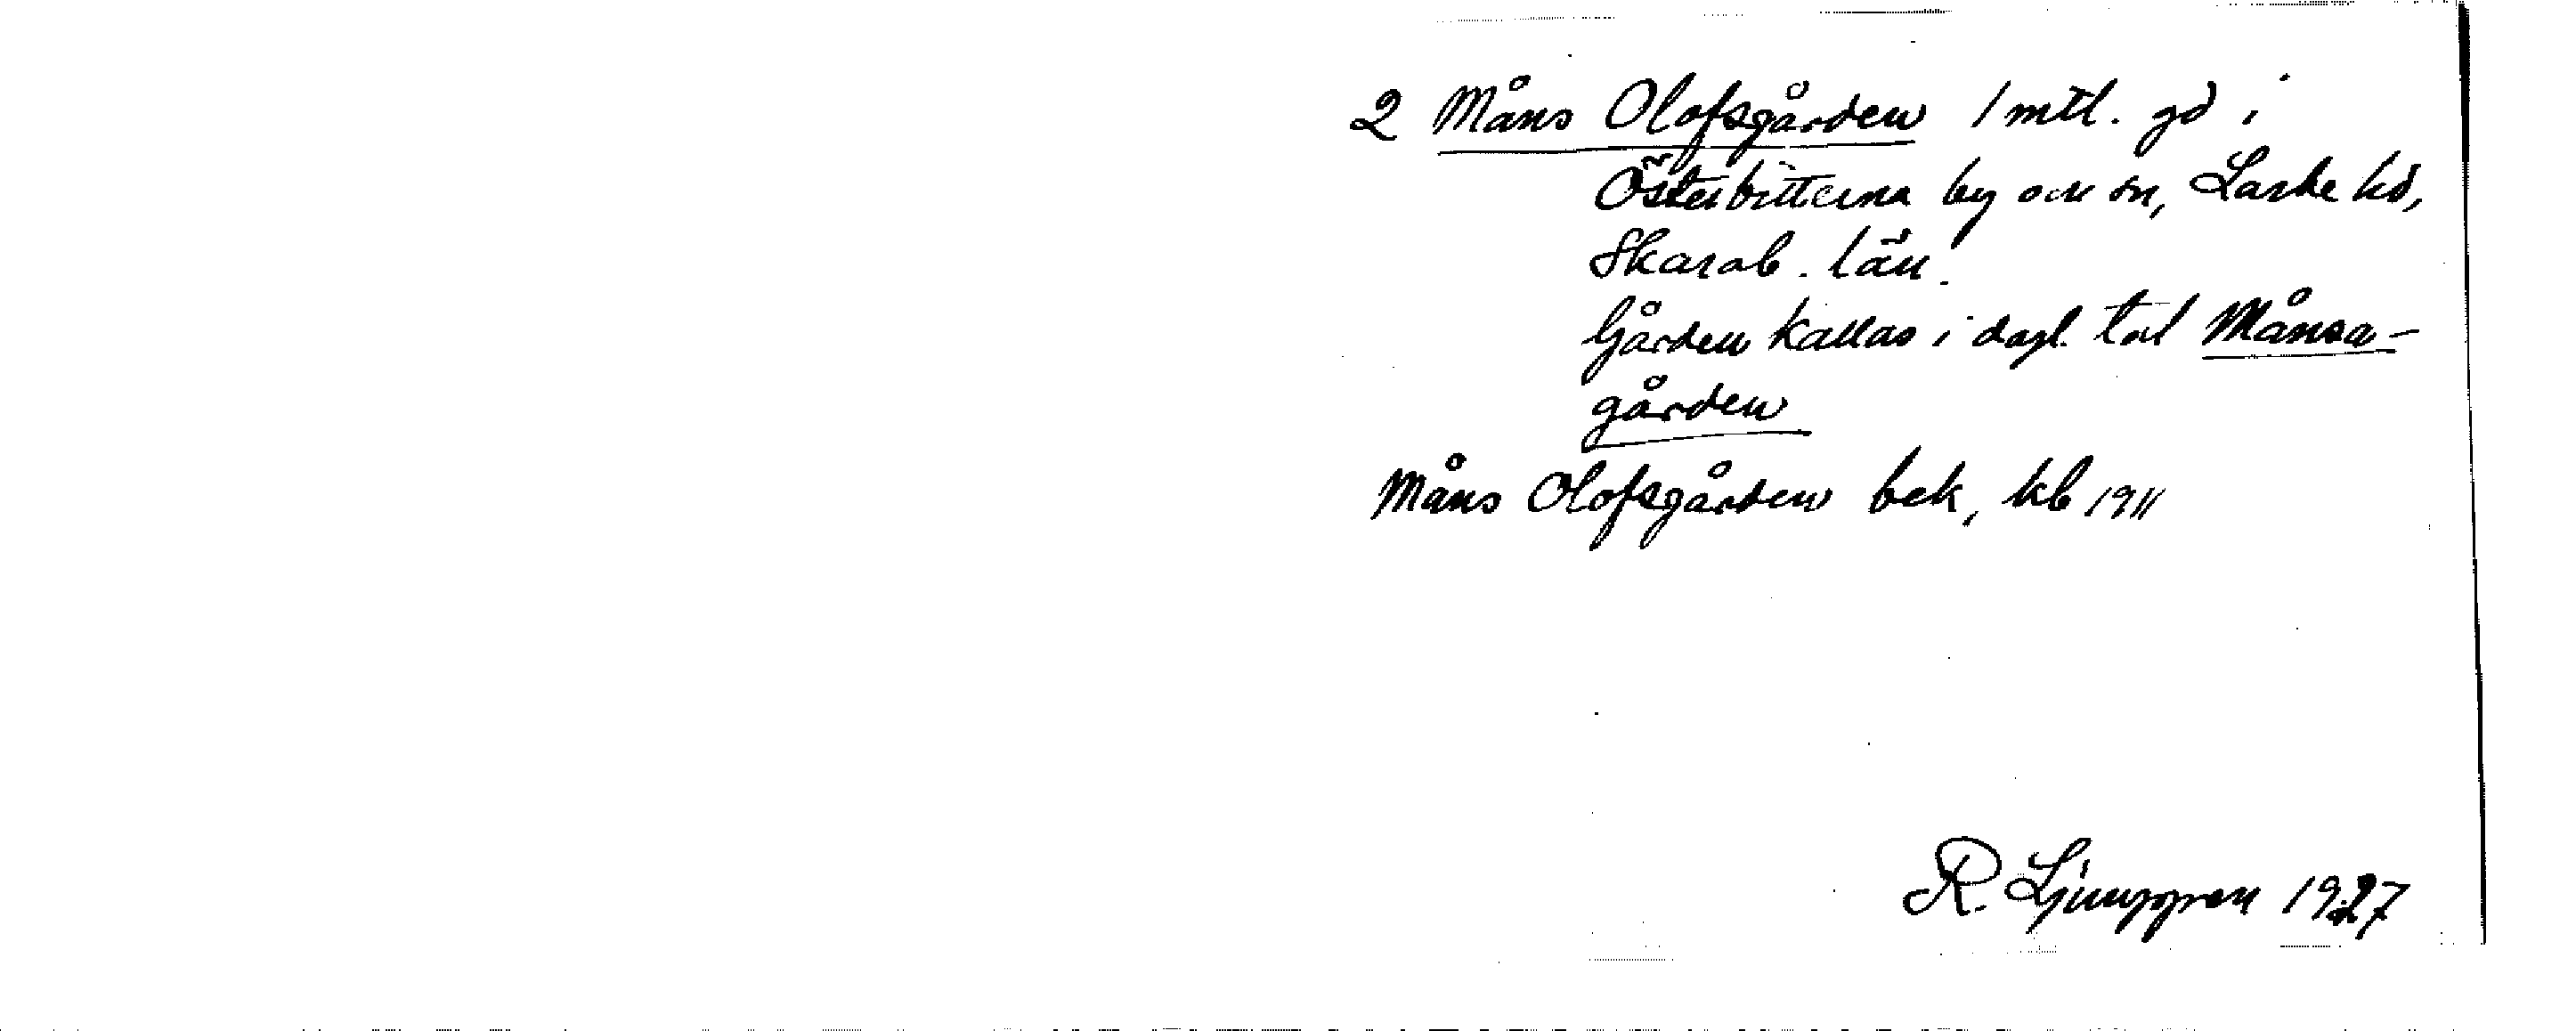 2 Måns Olofsgården 1 mtl. gd i
Österbitterna by och sn, Laske hd,
Skarab. län.
Gården kallas i dagl. tal Månsa-
gården
Måns Olofsgården bek, kb 1911
R. Ljunggren 1927